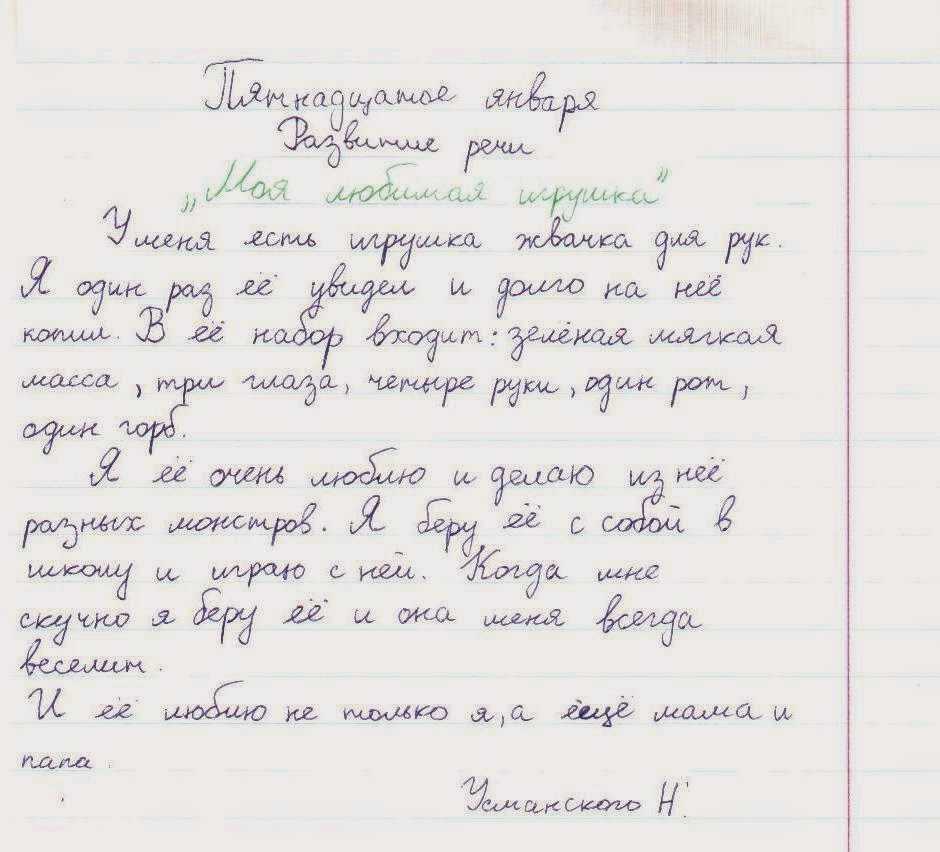 Пятнадцатое января
Развитие речи
„Моя любимая игрушка”
У меня есть игрушка жвачка для рук.
Я один раз её увидел и долго на неё
копил. В её набор входит: зелёная мягкая
масса, три глаза, четыре руки, один рот,
один горб.
Я её очень люблю и делаю из неё
разных монстров. Я беру её с собой в
школу и играю с ней. Когда мне
скучно я беру её и она меня всегда
веселит.
И её люблю не только я, а ещё мама и
папа.
Усманского Н.